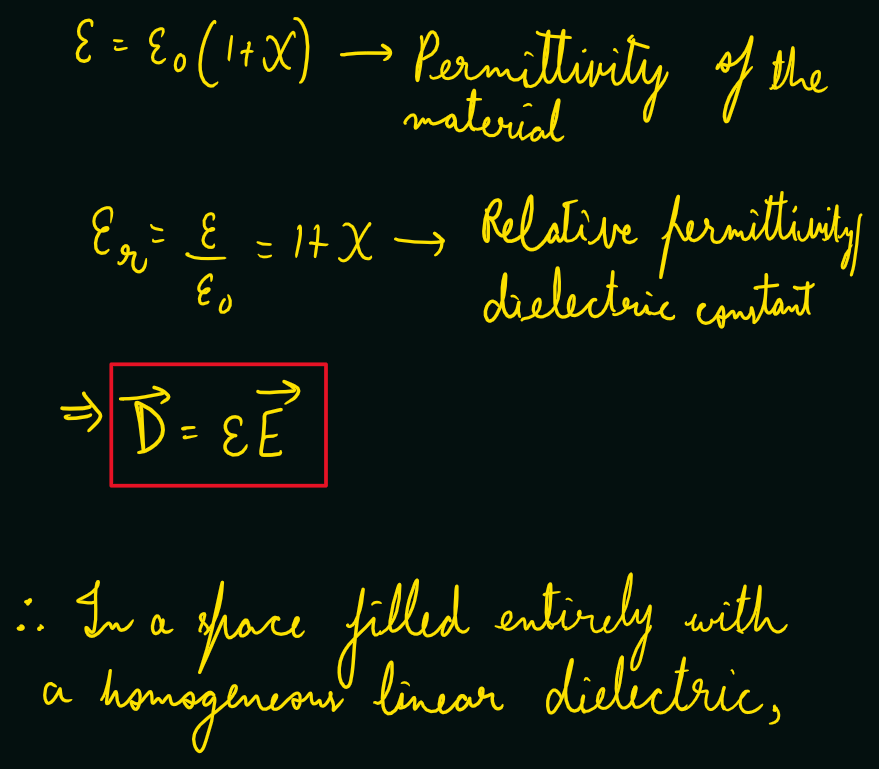 ε = ε₀(1+χ) → Permittivity of the
material
εᵣ = ε/ε₀ = 1+χ → Relative permittivity/
dielectric constant
⇒ D⃗ = εE⃗
∴ In a space filled entirely with
a homogeneous linear dielectric,